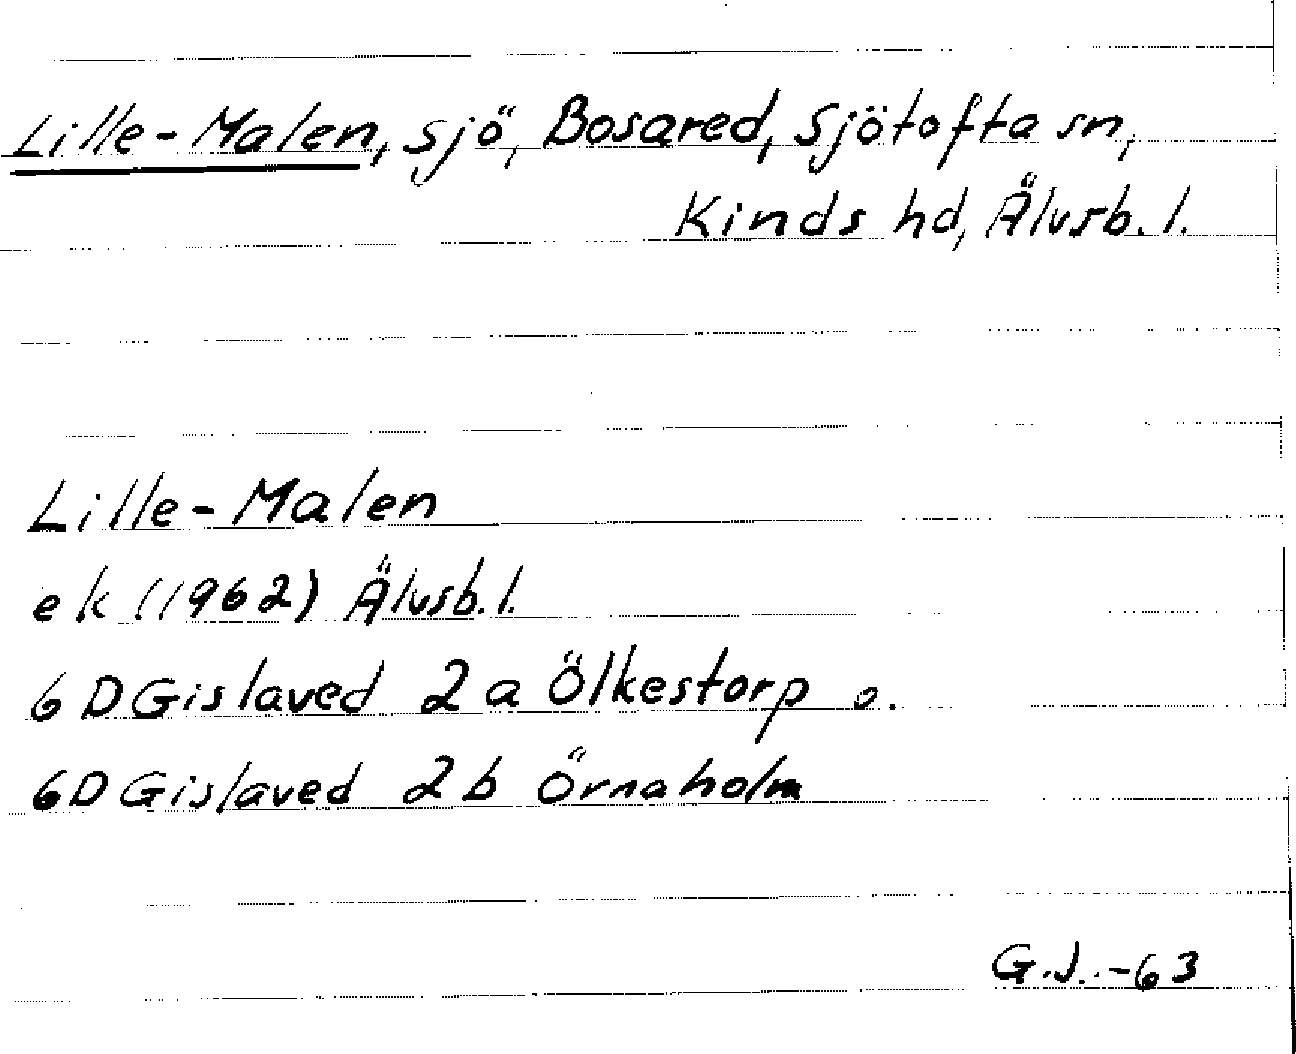 Lille-Malen, sjö, Bosared, Sjötofta sn,
Kinds hd, Älvsb. l.
Lille-Malen
ek (1962) Älvsb. l.
6D Gislaved 2a Ölkestorp o.
6D Gislaved 2b Örnaholm
G.J. -63